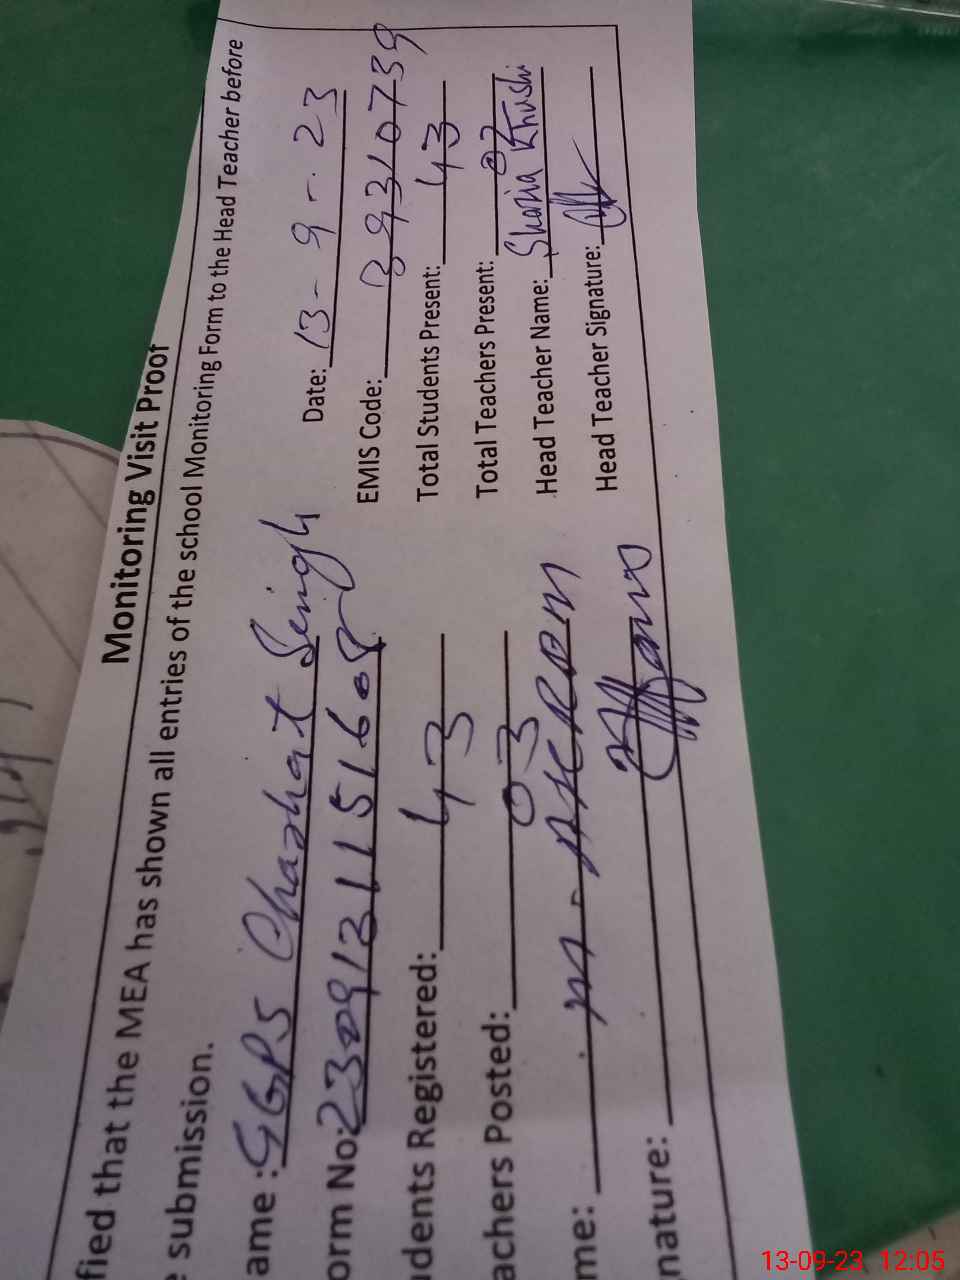 Monitoring Visit Proof
fied that the MEA has shown all entries of the school Monitoring Form to the Head Teacher before
e submission.
ame : GGPS Charhat Singh Date: 13-9-23
orm No: EMIS Code: 39310739
udents Registered: 43 Total Students Present: 43
achers Posted: 03 Total Teachers Present: 03
me: M. Head Teacher Name: Shazia Khushi
nature: Head Teacher Signature:
13-09-23 12:05